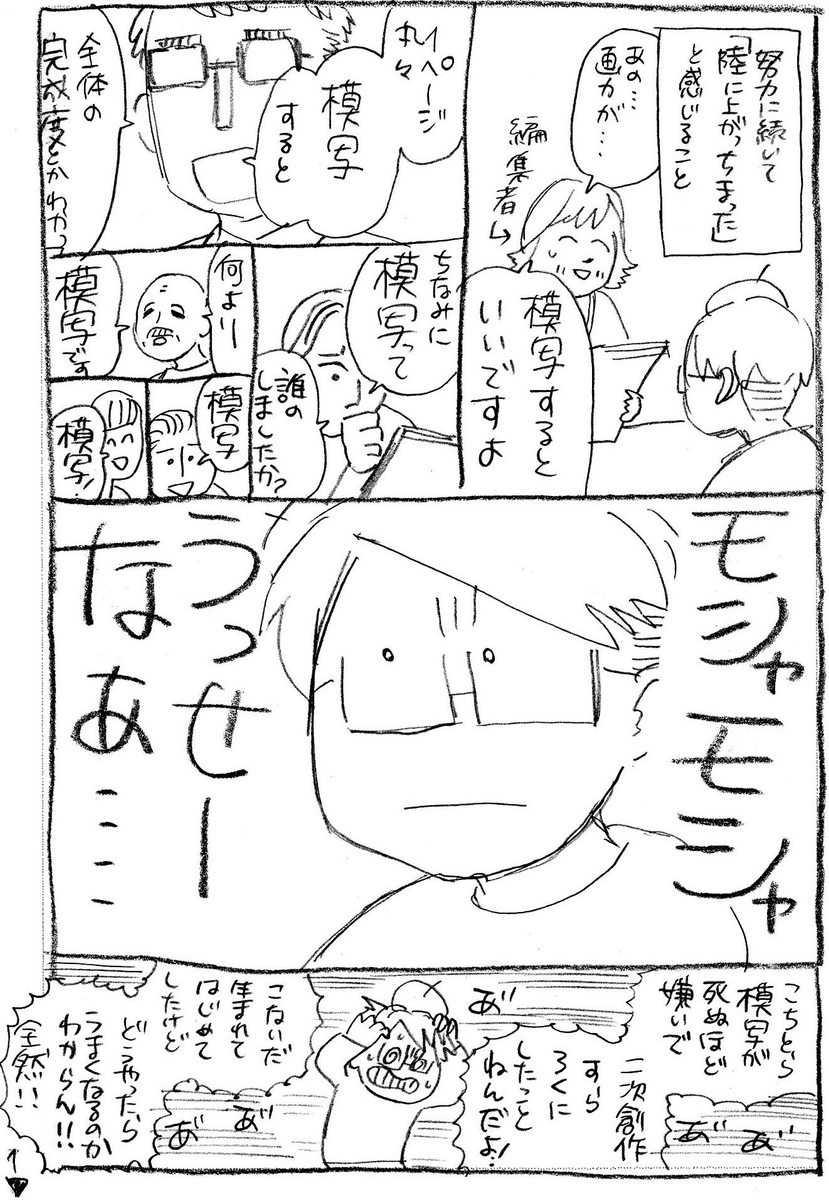 努力に続いて
「陸に上がっちまった」
と感じること
あの…
画力が…
編集者→
模写すると
いいですよ
1ページ
丸々
模写
すると
全体の
完成度とかわかっ
ちなみに
模写って
誰の
しましたか?
何より
模写です
模写
模写!
モシャモシャ
うっせー
なあ・・・・
こちとら
模写が
死ぬほど
嫌いで
二次創作
すら
ろくに
したっと
ねんだよ!
あ゛
あ゛
あ゛
こないだ
生まれて
はじめて
したけど
どうやったら
うまくなるのか
わからん!!
全然!!
あ゛
あ゛
1